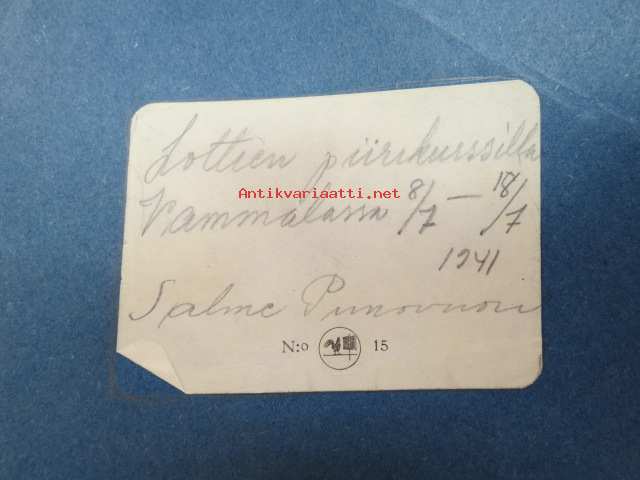 Lottien piirikurssilla
Antikvariaatti.net
Vammalassa 8/7 — 18/7
1941
Salme Punovuori
N:o 15